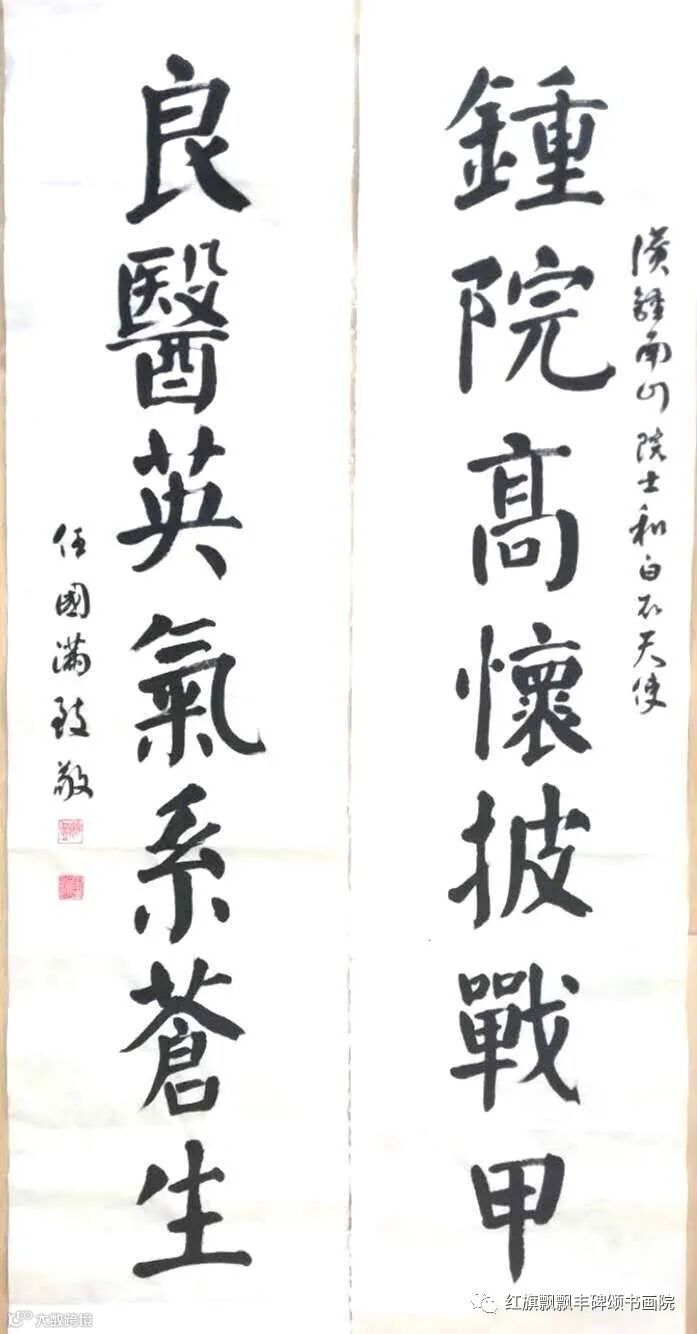 鍾院高懷披戰甲
鍾南山院士和白衣天使
良醫英氣系蒼生
任國滿致敬
红旗飘飘丰碑颂书画院
大数跨境